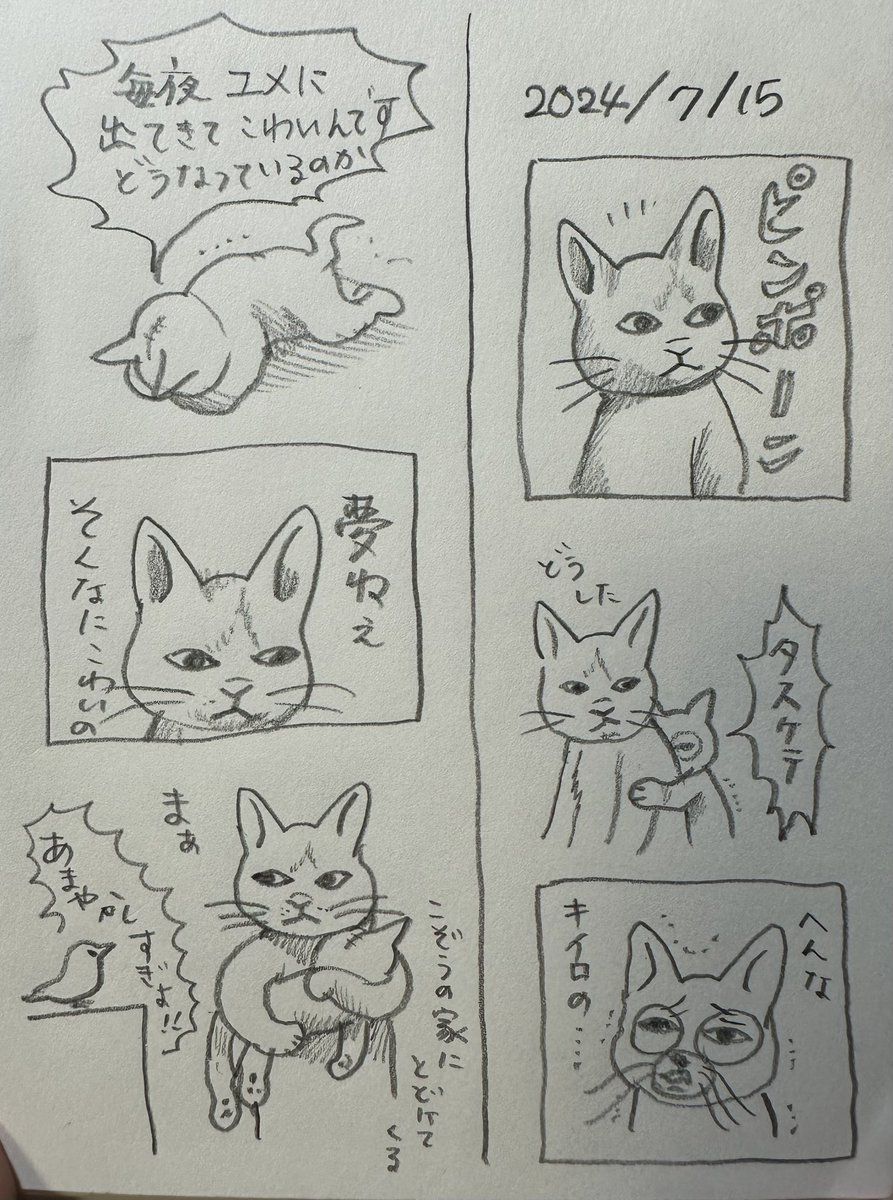 2024/7/15
ピンポーン
どう
した
タスケテ
へんな
キイロの……
毎夜 ユメに
出てきて こわいんです
どうなっているのか
……
夢ねえ
そんなにこわいの
まぁ
こぞうの家に
とどけて
くる
あまやかし
すぎよ!!